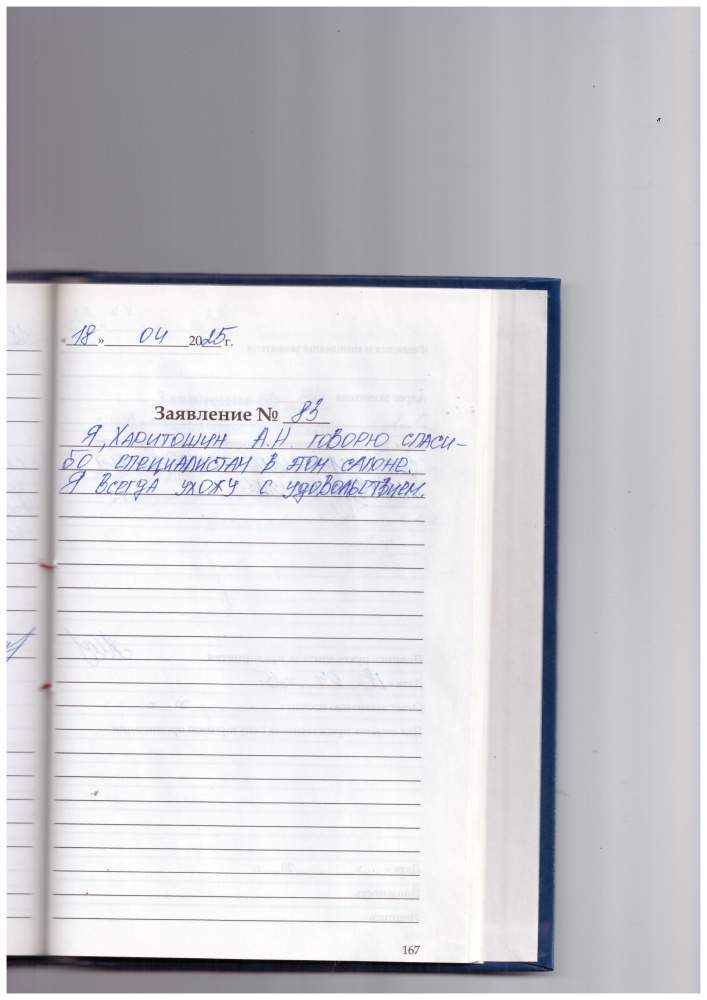 «18» 04 2025 г.
Заявление № 83
Я, Харитошин А.Н. говорю спаси-
бо специалистам в этом салоне.
Я всегда ухожу с удовольствием.
167